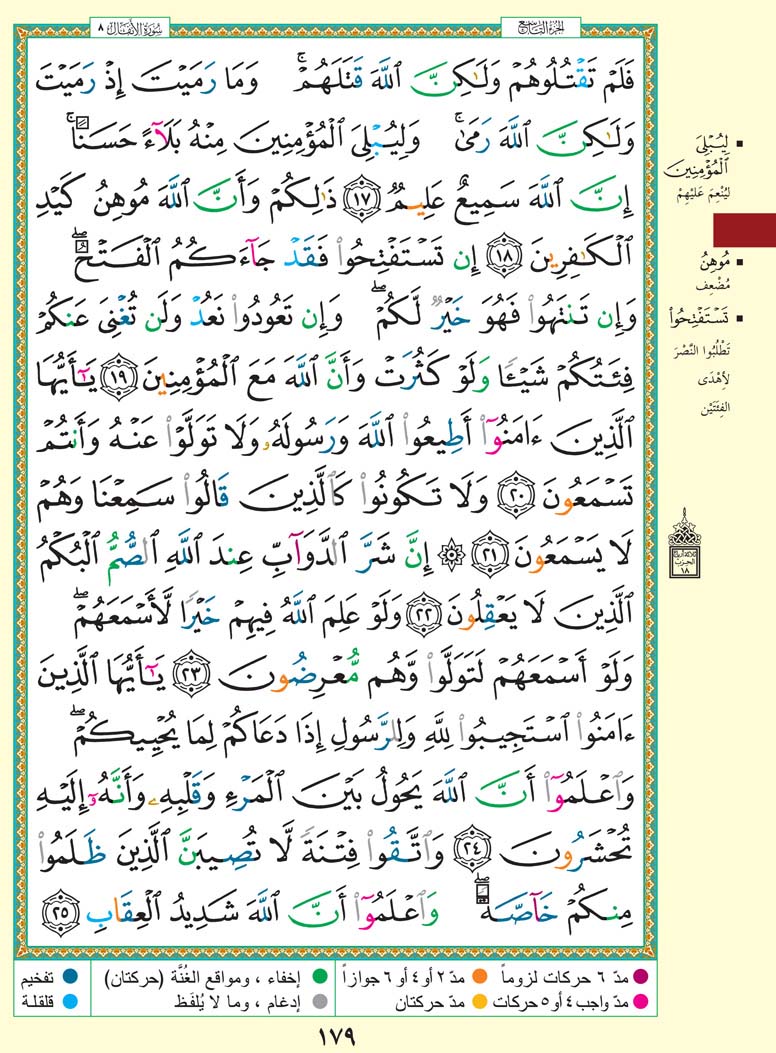 سُورَةُ الأَنْفَال ٨
الجُزْءُ التَّاسِعُ
فَلَمْ تَقْتُلُوهُمْ وَلَٰكِنَّ ٱللَّهَ قَتَلَهُمْ ۚ وَمَا رَمَيْتَ إِذْ رَمَيْتَ
وَلَٰكِنَّ ٱللَّهَ رَمَىٰ ۚ وَلِيُبْلِىَ ٱلْمُؤْمِنِينَ مِنْهُ بَلَآءً حَسَنًا ۚ
إِنَّ ٱللَّهَ سَمِيعٌ عَلِيمٌ ١٧ ذَٰلِكُمْ وَأَنَّ ٱللَّهَ مُوهِنُ كَيْدِ
ٱلْكَـٰفِرِينَ ١٨ إِن تَسْتَفْتِحُوا۟ فَقَدْ جَآءَكُمُ ٱلْفَتْحُ ۖ
وَإِن تَنتَهُوا۟ فَهُوَ خَيْرٌ لَّكُمْ ۖ وَإِن تَعُودُوا۟ نَعُدْ وَلَن تُغْنِىَ عَنكُمْ
فِئَتُكُمْ شَيْـًٔا وَلَوْ كَثُرَتْ وَأَنَّ ٱللَّهَ مَعَ ٱلْمُؤْمِنِينَ ١٩ يَـٰٓأَيُّهَا
ٱلَّذِينَ ءَامَنُوٓا۟ أَطِيعُوا۟ ٱللَّهَ وَرَسُولَهُۥ وَلَا تَوَلَّوْا۟ عَنْهُ وَأَنتُمْ
تَسْمَعُونَ ٢٠ وَلَا تَكُونُوا۟ كَٱلَّذِينَ قَالُوا۟ سَمِعْنَا وَهُمْ
لَا يَسْمَعُونَ ٢١ ۞ إِنَّ شَرَّ ٱلدَّوَآبِّ عِندَ ٱللَّهِ ٱلصُّمُّ ٱلْبُكْمُ
ٱلَّذِينَ لَا يَعْقِلُونَ ٢٢ وَلَوْ عَلِمَ ٱللَّهُ فِيهِمْ خَيْرًا لَّأَسْمَعَهُمْ ۖ
وَلَوْ أَسْمَعَهُمْ لَتَوَلَّوا۟ وَّهُم مُّعْرِضُونَ ٢٣ يَـٰٓأَيُّهَا ٱلَّذِينَ
ءَامَنُوا۟ ٱسْتَجِيبُوا۟ لِلَّهِ وَلِلرَّسُولِ إِذَا دَعَاكُمْ لِمَا يُحْيِيكُمْ ۖ
وَٱعْلَمُوٓا۟ أَنَّ ٱللَّهَ يَحُولُ بَيْنَ ٱلْمَرْءِ وَقَلْبِهِۦ وَأَنَّهُۥٓ إِلَيْهِ
تُحْشَرُونَ ٢٤ وَٱتَّقُوا۟ فِتْنَةً لَّا تُصِيبَنَّ ٱلَّذِينَ ظَلَمُوا۟
مِنكُمْ خَآصَّةً ۖ وَٱعْلَمُوٓا۟ أَنَّ ٱللَّهَ شَدِيدُ ٱلْعِقَابِ ٢٥
لِيُبْلِىَ
ٱلْمُؤْمِنِينَ
لِيُنْعِمَ عَلَيْهِمْ
مُوهِنُ
مُضْعِف
تَسْتَفْتِحُوا۟
تَطْلُبُوا النَّصْرَ
لِأَهْدَى
الفِئَتَيْنِ
الحِزْب
١٨
مدّ ٦ حركات لزوماً مدّ ٢ أو ٤ أو ٦ جوازاً إخفاء ، ومواقع الغُنَّة (حركتان) تفخيم
مدّ واجب ٤ أو ٥ حركات مدّ حركتان إدغام ، وما لا يُلفَظ قلقلة
١٧٩